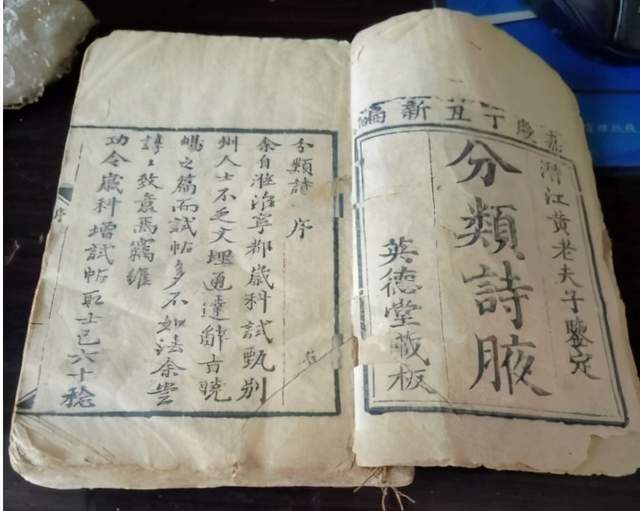 嘉慶丁丑新
潛江黃老夫子鑒定
分類詩腋
英德堂藏板
分類詩 序
余自涖治寧都歲科試甄別
州人士不乏文理通達辭旨曉
暢之篇而試帖多不如法余嘗
諄〻致意焉竊維
功令歲科增試帖取士已六十稔
序